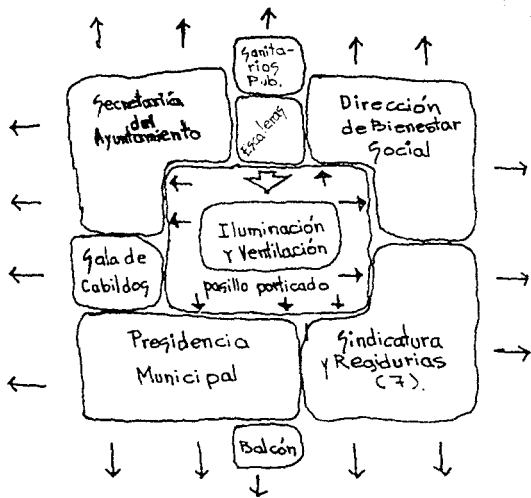 Sanita-
rios
Pub.
Secretaría
del
Ayuntamiento
Escaleras
Dirección
de Bienestar
Social
Iluminación
y Ventilación
Sala de
Cabildos
pasillo porticado
Presidencia
Municipal
Sindicatura
y Regidurias
(7).
Balcón